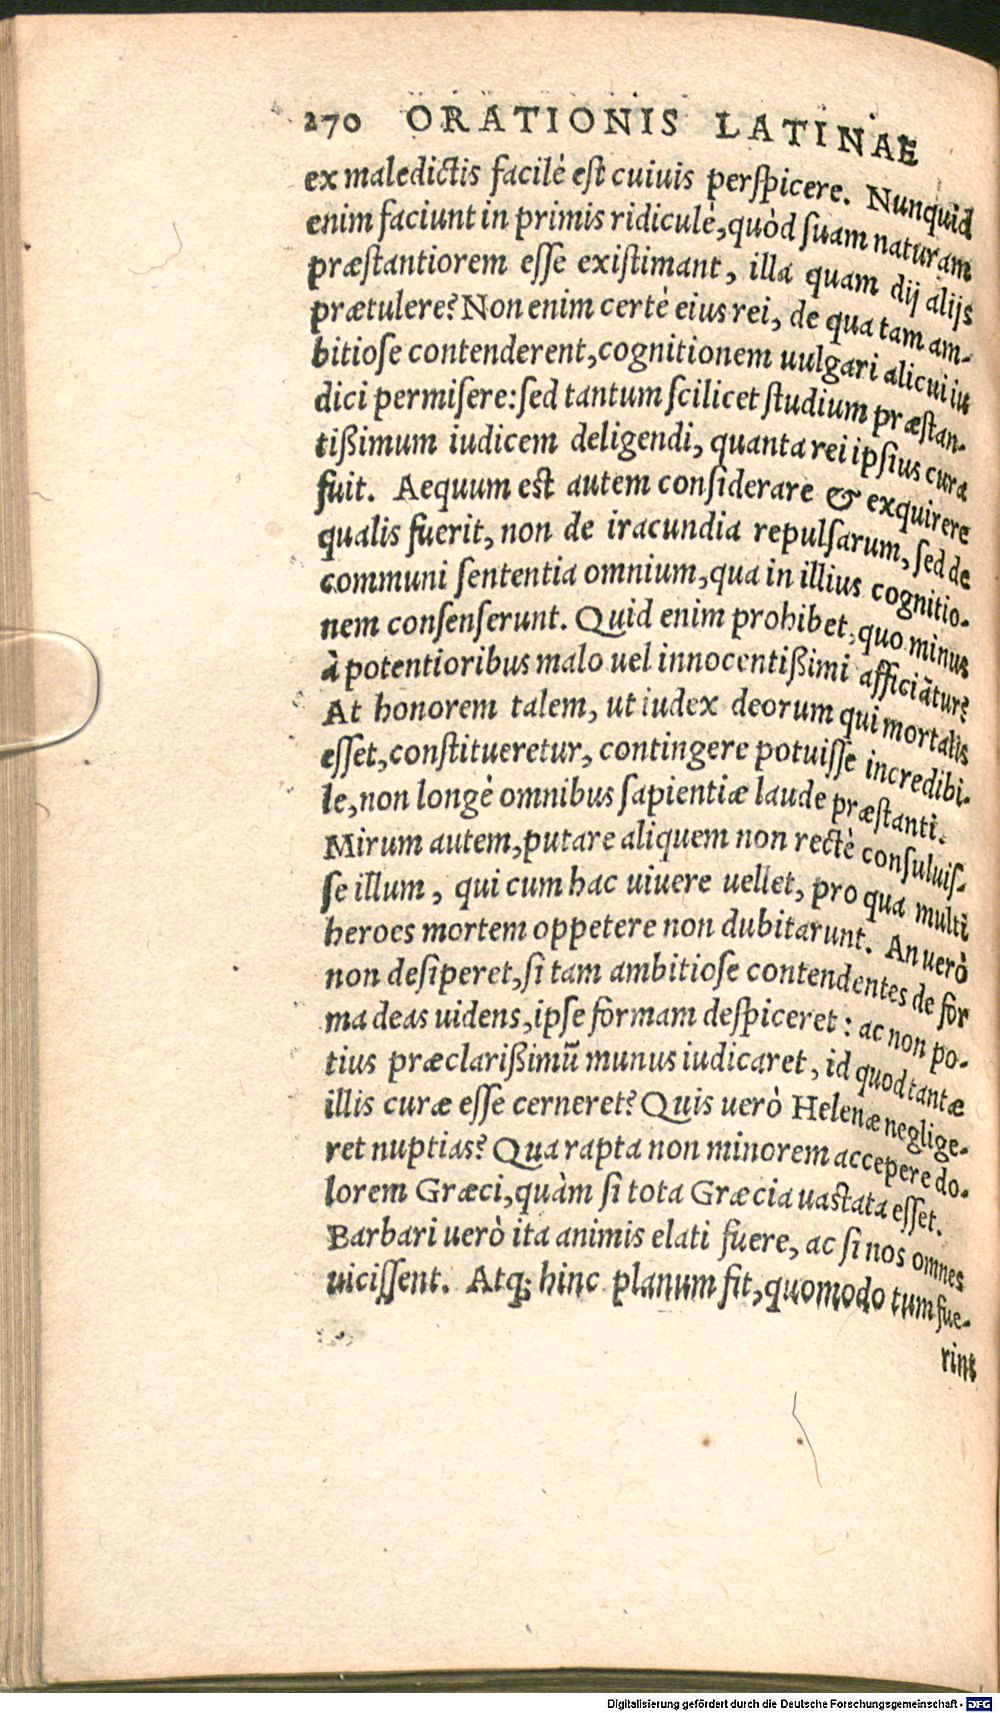 270 ORATIONIS LATINAE
ex maledictis facilè est cuiuis perſpicere. Nunquid
enim faciunt in primis ridiculè, quòd ſuam naturam
præſtantiorem eſſe exiſtimant, illa quam dij alijs
prætulere? Non enim certè eius rei, de qua tam am-
bitioſe contenderent, cognitionem uulgari alicui iu
dici permiſere: ſed tantum ſcilicet ſtudium præſtan-
tißimum iudicem deligendi, quanta rei ipſius cura
fuit. Aequum est autem conſiderare & exquirere
qualis fuerit, non de iracundia repulſarum, ſed de
communi ſententia omnium, qua in illius cognitio-
nem conſenſerunt. Quid enim prohibet, quo minus
à potentioribus malo uel innocentißimi afficiātur?
At honorem talem, ut iudex deorum qui mortalis
eſſet, conſtitueretur, contingere potuiſſe incredibi-
le, non longè omnibus ſapientiæ laude præſtanti.
Mirum autem, putare aliquem non rectè conſuluiſ-
ſe illum, qui cum hac uiuere uellet, pro qua multi
heroes mortem oppetere non dubitarunt. An uerò
non deſiperet, ſi tam ambitioſe contendentes de for
ma deas uidens, ipſe formam deſpiceret: ac non po-
tius præclarißimū munus iudicaret, id quod tantæ
illis curæ eſſe cerneret? Quis uerò Helenæ neglige-
ret nuptias? Qua rapta non minorem accepere do-
lorem Græci, quàm ſi tota Græcia uaſtata eſſet.
Barbari uerò ita animis elati fuere, ac ſi nos omnes
uiciſſent. Atq; hinc planum fit, quomodo tum fue-
rint
Digitalisierung gefördert durch die Deutsche Forschungsgemeinschaft - DFG